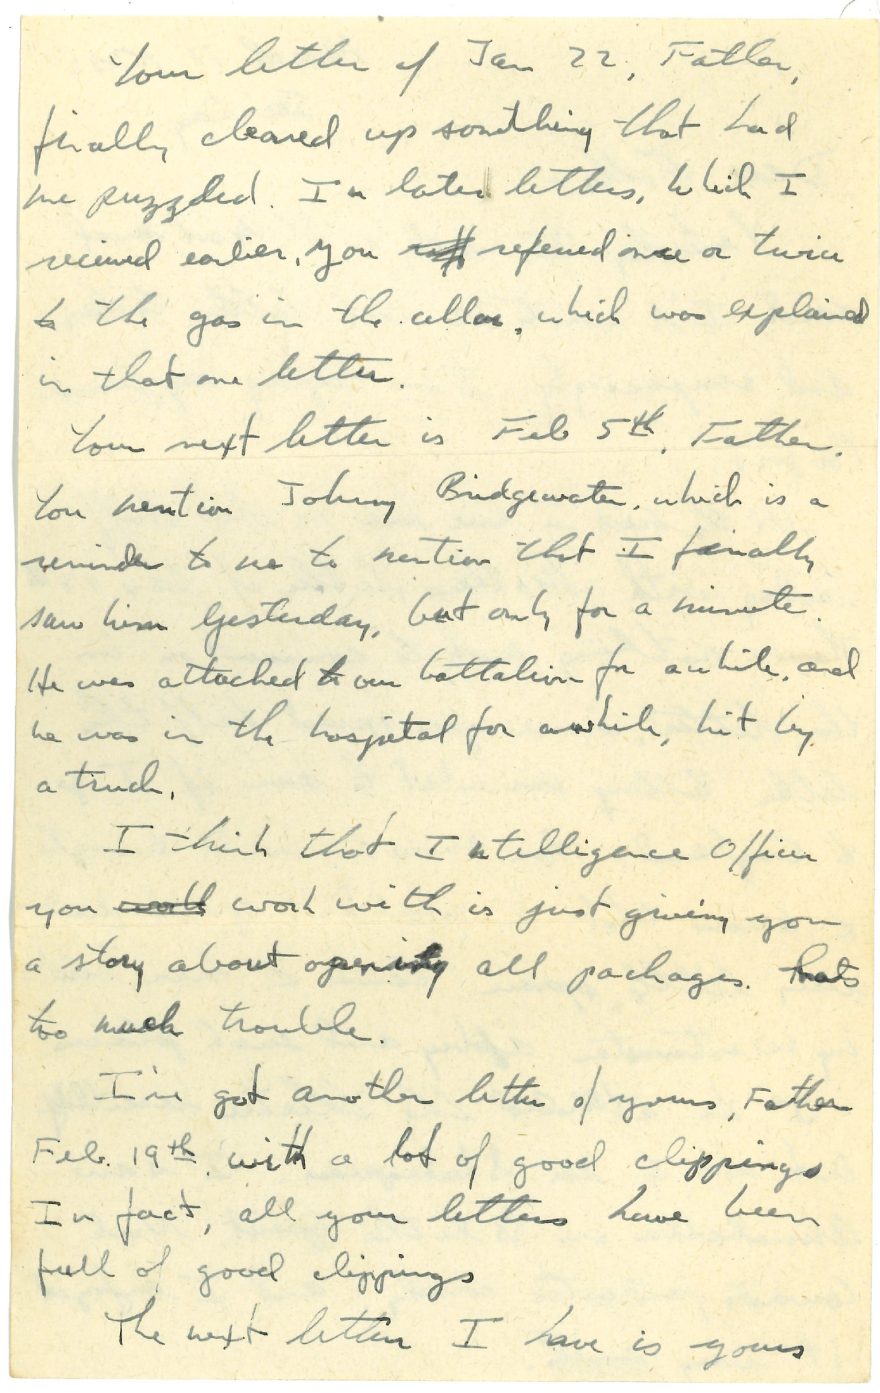 Your letter of Jan 22, Father,
finally cleared up something that had
me puzzled. In later letters, which I
recieved earlier, you referred once or twice
to the gas in the cellar, which was explained
in that one letter.
Your next letter is Feb 5th, Father.
You mention Johnny Bridgewater, which is a
reminder to me to mention that I finally
saw him yesterday, but only for a minute.
He was attached to our battalion for awhile, and
he was in the hospital for awhile, hit by
a truck.
I think that Intelligence Officer
you work with is just giving you
a story about opening all packages. thats
too much trouble.
I've got another letter of yours, Father
Feb. 19th, with a lot of good clippings
In fact, all your letters have been
full of good clippings
The next letter I have is yours